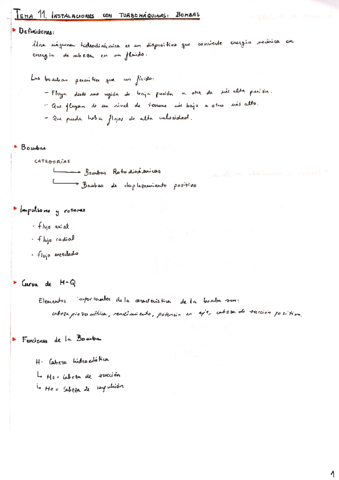 TEMA 11. INSTALACIONES CON TURBOMÁQUINAS: BOMBAS
Definiciones:
Una máquina hidrodinámica es un dispositivo que convierte energía mecánica en
energía de cabeza en un fluido.
Las bombas permiten que un fluido:
- Fluya desde una región de baja presión a otra de más alta presión.
- Que fluyan de un nivel de terreno más bajo a otro más alto.
- Que pueda haber flujos de alta velocidad.
Bombas
CATEGORÍAS
Bombas Rotodinámicas
Bombas de desplazamiento positivo
Impulsores y rotores
· flujo axial
· flujo radial
· flujo mezclado
Curva de H-Q
Elementos importantes de la característica de la bomba son:
cabeza piezométrica, rendimiento, potencia en eje, cabeza de succión positiva.
Funciones de la Bomba
H = Cabeza hidrostática
Hs = cabeza de succión
= cabeza de impulsión
1